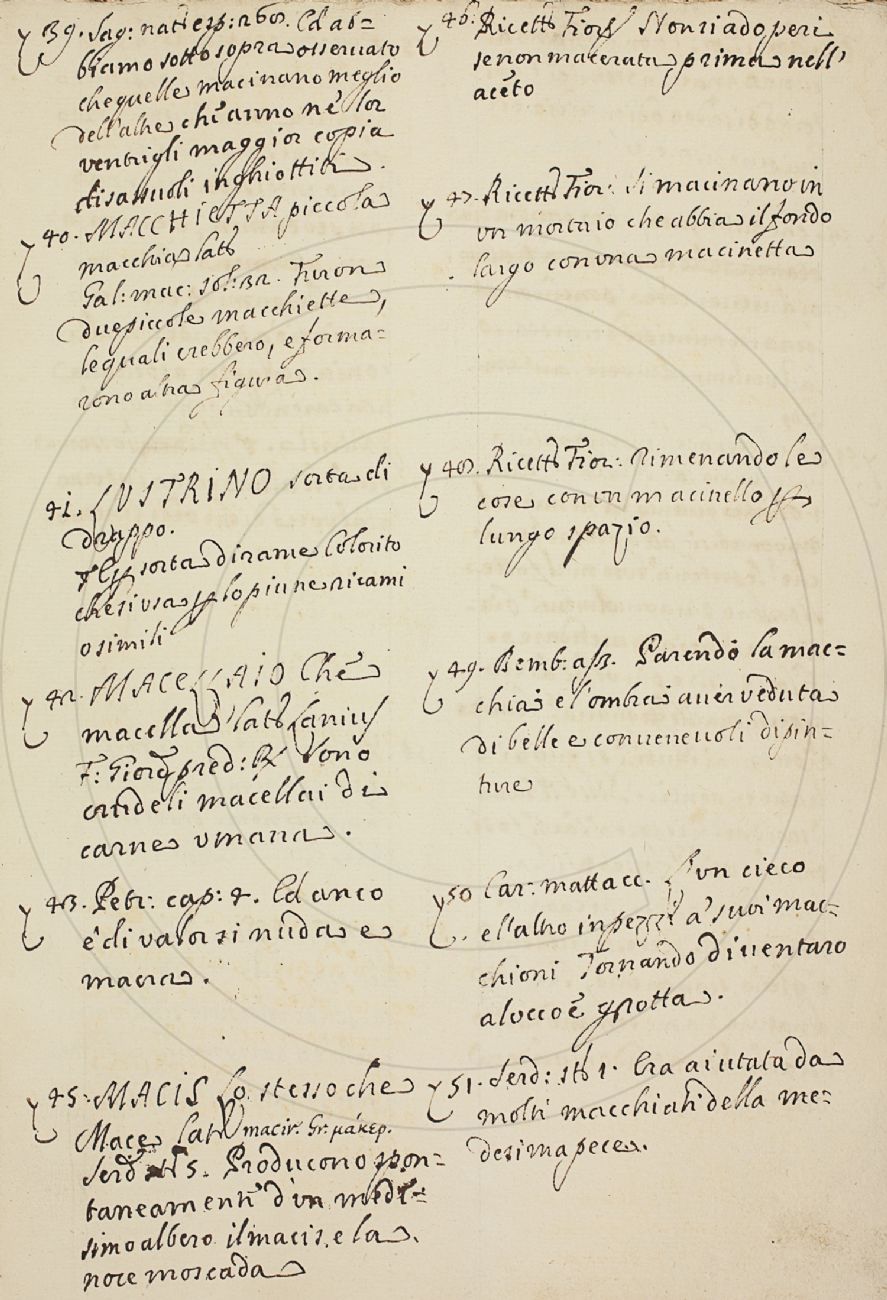 39. Sag: nat: esp: 260. Ed ab=
biamo sotto sopra osservato
che quelle macinano meglio
dell'altre che anno ne lor
ventrigli maggior copia
di sassuoli inghiottiti.
40. MACCHIETTA piccola
macchia lat:
Gal: mac: sol: 32. Furon
due piccole macchiette,
le quali crebbero, e forma=
rono altra figura.
41. LUSTRINO sorta di
drappo.
sorta di rame Colorito
che si usa p lo piu ne ricami
o simili
42. MACELLAIO Che
macella lat: Lanius
F: Giord: pred: R Sono
crudeli macellai di
carne umana.
43. Petr: cap: 4. Ed anco
è di valor si nuda e
macra.
45. MACIS Lo stesso che
Mace lat: macir. Gr. μάκερ.
Serd: st: 5. Producono spon=
taneamente d'un mede=
simo albero il macis, e la
noce moscada
46. Ricett: Fior: Non si adoperi
se non macerata prima nell'
aceto
47. Ricett: Fior: Si macinano in
un mortaio che abbia il fondo
largo con una macinetta
48. Ricett: Fior: Rimenando le
cose con un macinello p
lungo spazio.
49. Bemb: as: Parendo la mac=
chia e l'ombra aver veduta
di belle e convenevoli dipin=
ture
50 Car: mattacc. L'un cieco
e l'altro in pezzi a' suoi mac=
chioni Tornando diventaro
alocco e grotta.
51. Serd: st: 1. Era aiutata da
molti macchiati della me=
desima pece.